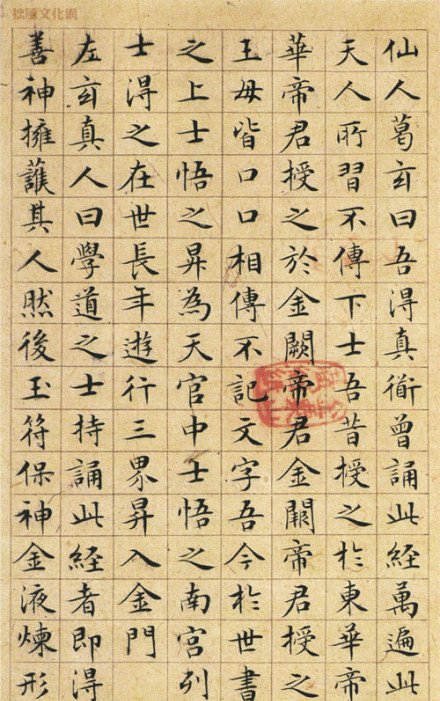 拙風文化網
仙人葛玄曰吾得真衜曾誦此經萬遍此
天人所習不傳下士吾昔授之於東華帝
華帝君授之於金闕帝君金闕帝君授之
王母皆口口相傳不記文字吾今於世書
之上士悟之昇為天官中士悟之南宮列
士得之在世長年遊行三界昇入金門
左玄真人曰學道之士持誦此經者即得
善神擁護其人然後玉符保神金液煉形